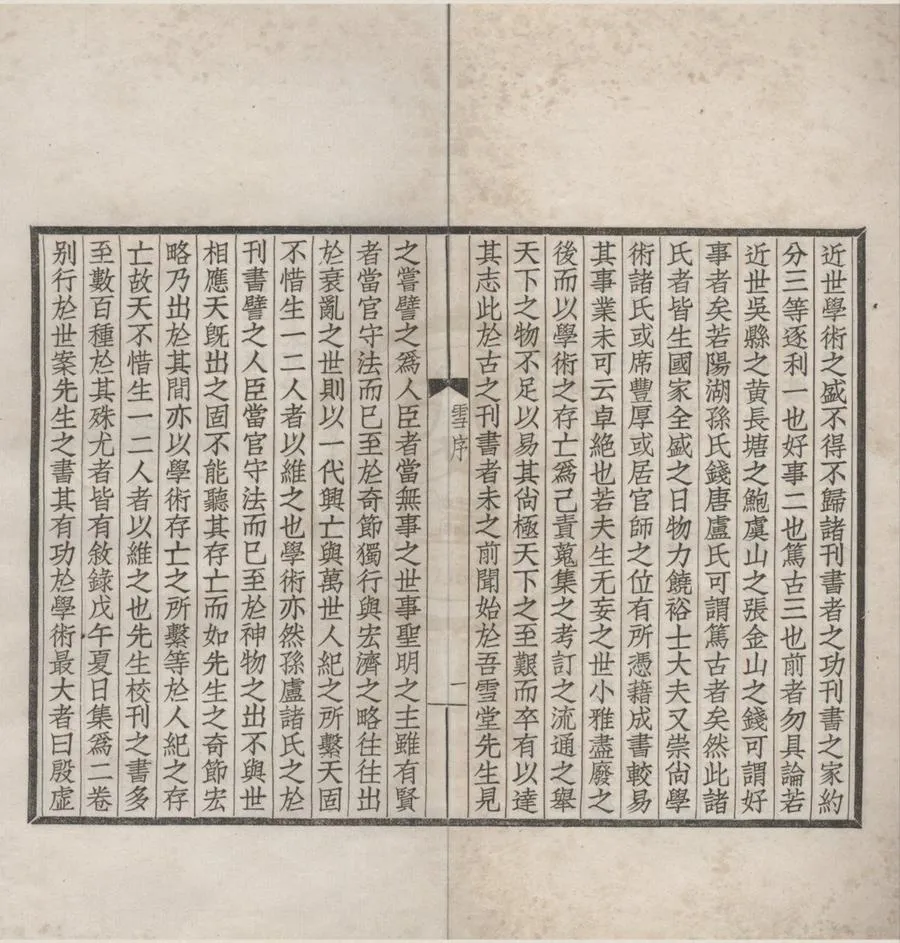 近世學術之盛不得不歸諸刊書者之功刊書之家約
分三等逐利一也好事二也篤古三也前者勿具論若
近世吳縣之黃長塘之鮑虞山之張金山之錢可謂好
事者矣若陽湖孫氏錢唐盧氏可謂篤古者矣然此諸
氏者皆生國家全盛之日物力饒裕士大夫又崇尙學
術諸氏或席豐厚或居官師之位有所憑藉成書較易
其事業未可云卓絶也若夫生无妄之世小雅盡廢之
後而以學術之存亡爲己責蒐集之考訂之流通之舉
天下之物不足以易其尙極天下之至艱而卒有以達
其志此於古之刊書者未之前聞始於吾雪堂先生見
雪序
一
之嘗譬之爲人臣者當無事之世事聖明之主雖有賢
者當官守法而已至於奇節獨行與宏濟之略往往出
於衰亂之世則以一代興亡與萬世人紀之所繫天固
不惜生一二人者以維之也學術亦然孫盧諸氏之於
刊書譬之人臣當官守法而已至於神物之出不與世
相應天旣出之固不能聽其存亡而如先生之奇節宏
略乃出於其間亦以學術存亡之所繫等於人紀之存
亡故天不惜生一二人者以維之也先生校刊之書多
至數百種於其殊尤者皆有敘錄戊午夏日集爲二卷
別行於世案先生之書其有功於學術最大者曰殷虛